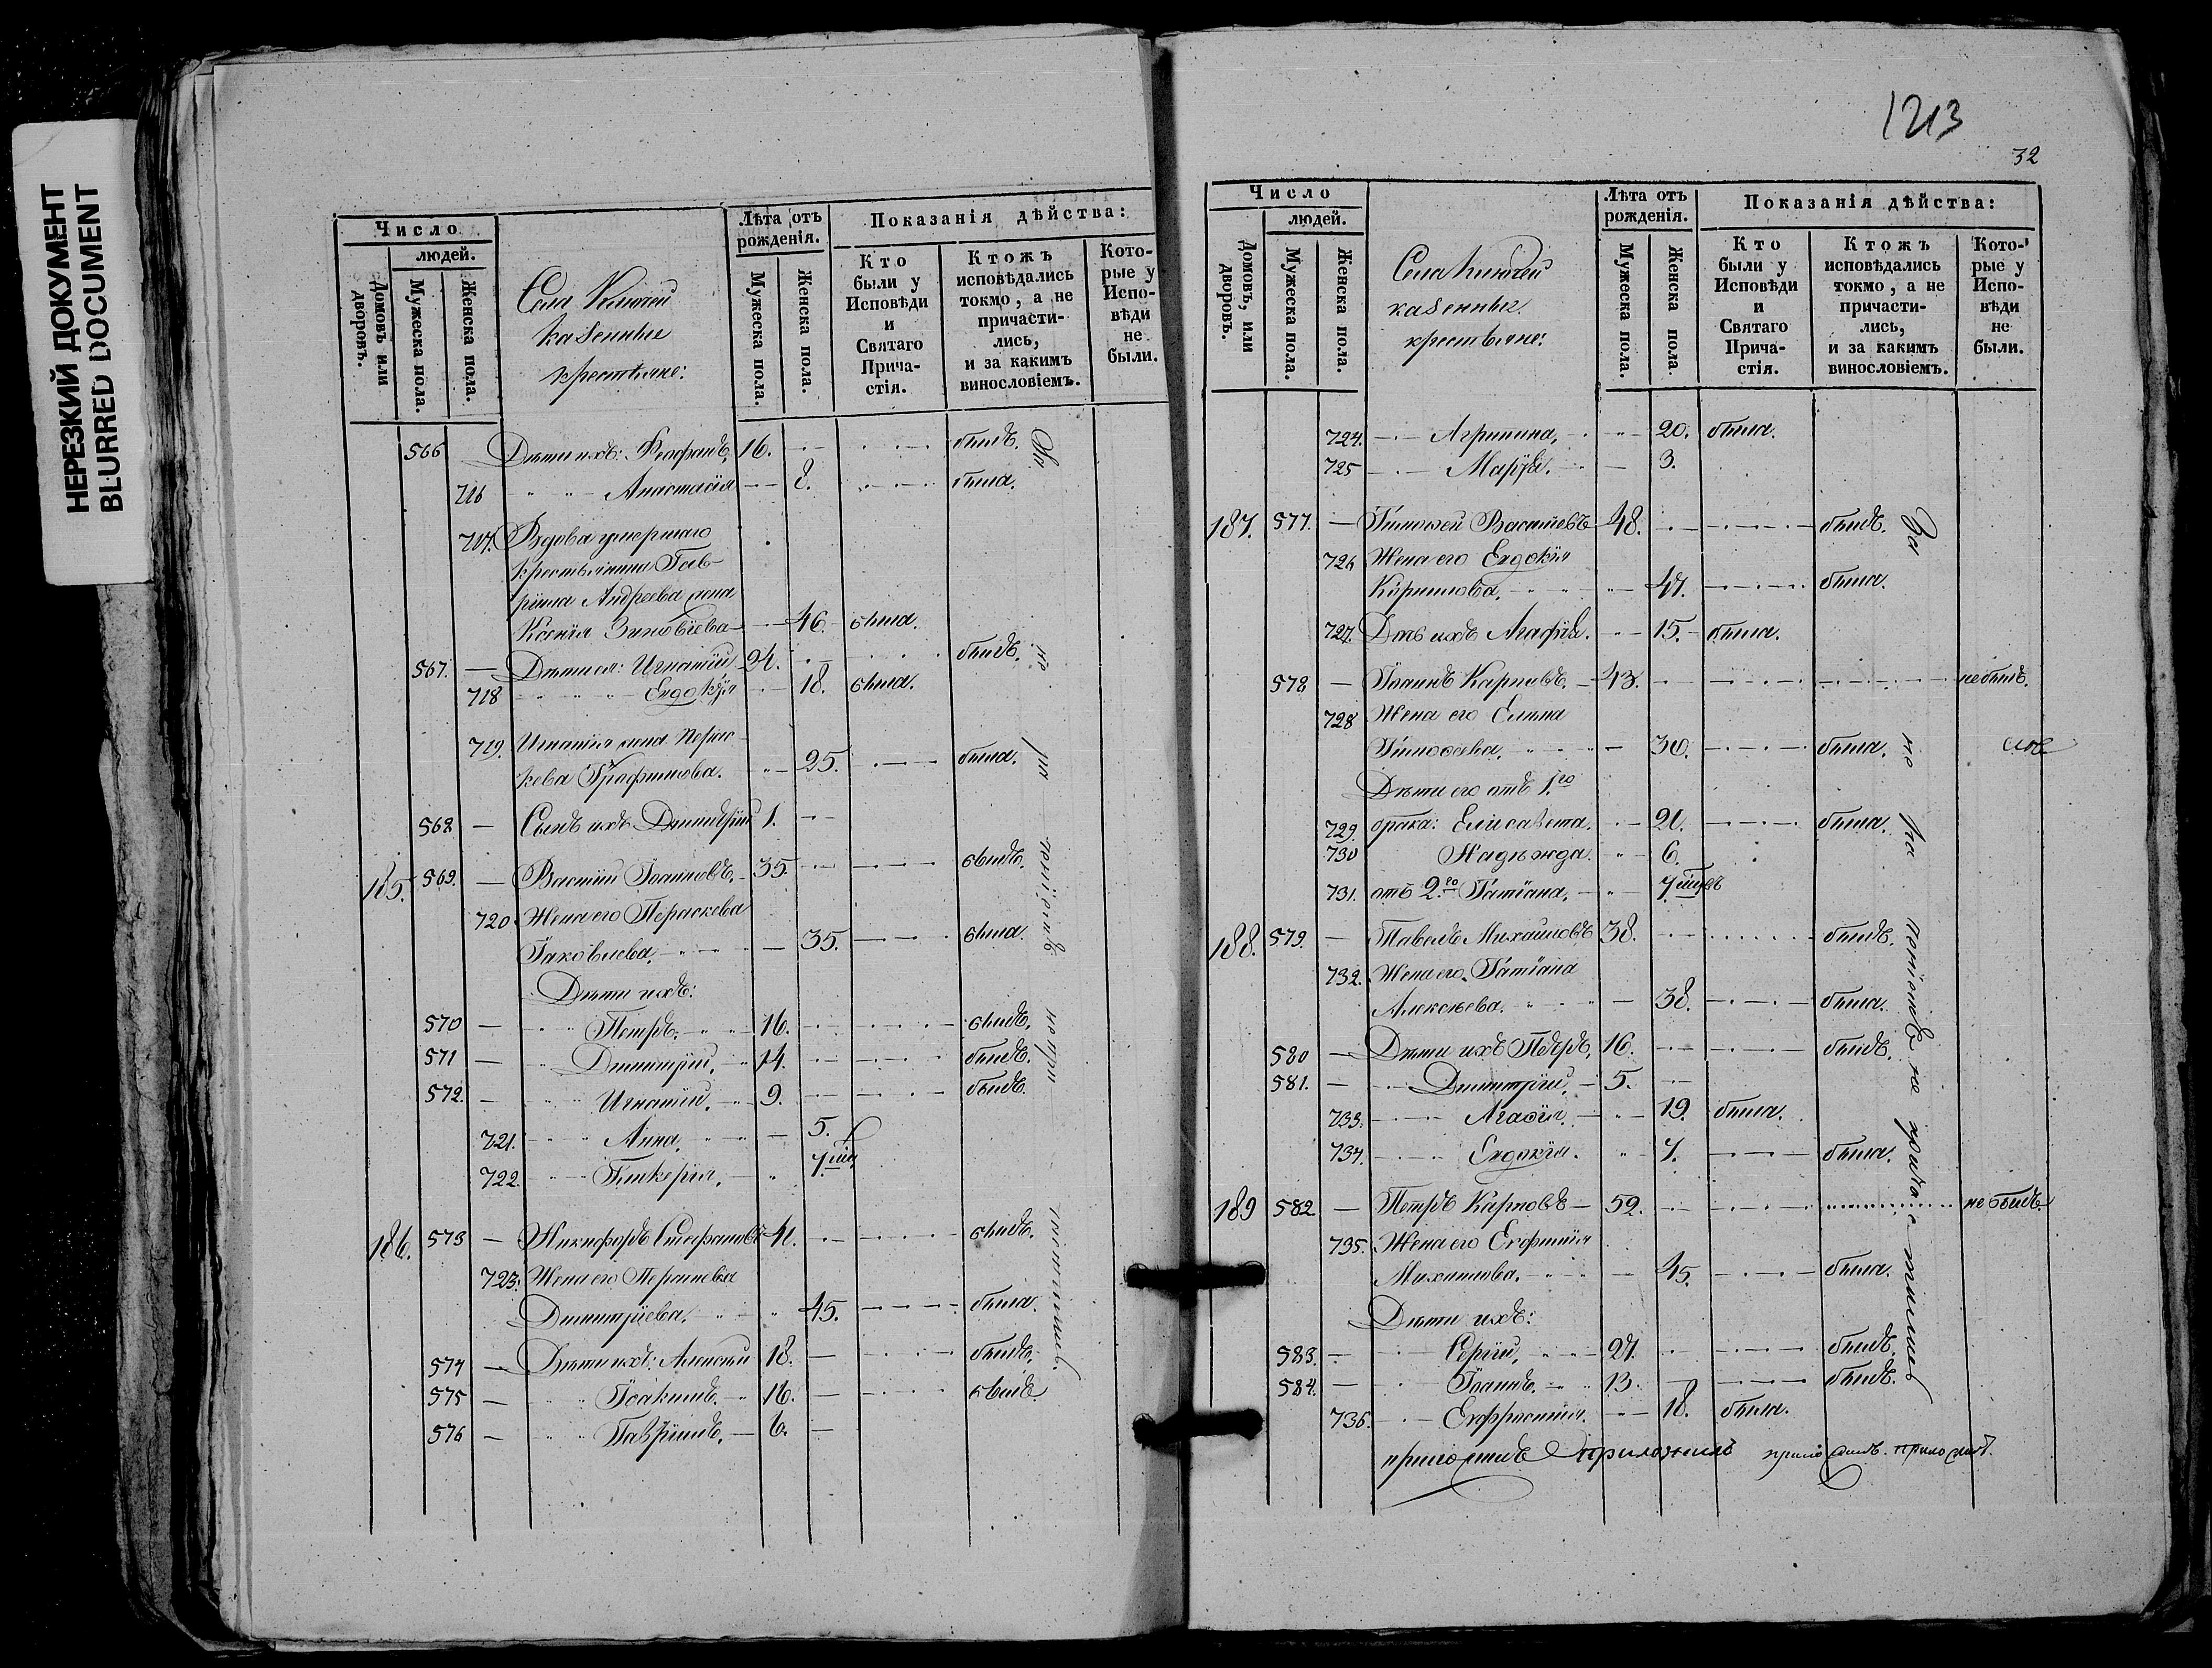 НЕРЕЗКИЙ ДОКУМЕНТ
BLURRED DOCUMENT
Число
людей.
Домовъ или дворовъ.
Мужеска пола.
Женска пола.
Села
казенные
крестьяне:
Лѣта отъ рожденія.
Мужеска пола.
Женска пола.
Показанія дѣйства:
Кто были у Исповѣди и Святаго Причастія.
Ктожъ исповѣдались токмо, а не причастились, и за какимъ винословіемъ.
Которые у Исповѣди не были.
566 Дѣти ихъ: Феофанъ, 16. былъ.
716 Анастасія 8. была.
717. Вдова умершаго
крестьянина Гав-
ріила Андреева жена
Ксенія Зиновіева 46. была.
567. Дѣти ея: Игнатій 24. былъ.
718 Евдокія 18. была.
719. Игнатія жена Парас-
кева Трофимова. 25. была.
568 Сынъ ихъ Димитрій 1.
185. 569. Василій Іоанновъ. 35. былъ.
720 Жена его Параскева
Іаковлева. 35. была.
Дѣти ихъ:
570 Петръ. 16. былъ.
571 Димитрій. 14. былъ.
572. Игнатій. 9. былъ.
721. Анна. 5.
722. Гликерія. 7.
186. 573 Никифоръ Стефановъ 41. былъ.
723. Жена его Параскева
Димитріева. 45. была.
574 Дѣти ихъ: Алексѣй 18. былъ.
575 Іоакимъ. 16. былъ
576 Гавріилъ. 6.
1213
32
Число
людей.
Домовъ, или дворовъ.
Мужеска пола.
Женска пола.
Села
казенные
крестьяне:
Лѣта отъ рожденія.
Мужеска пола.
Женска пола.
Показанія дѣйства:
Кто были у Исповѣди и Святаго Причастія.
Ктожъ исповѣдались токмо, а не причастились, и за какимъ винословіемъ.
Которые у Исповѣди не были.
724. Агрипина, 20. была.
725 Марѳа. 3.
187. 577. Тимоѳей Василіевъ 48. былъ.
726 Жена его Евдокія
Кириллова. 47. была.
727. Дочь ихъ Агафія. 15. была.
578 Іоаннъ Карповъ. 43. не былъ.
728 Жена его Елена
Тимоѳеева. 30. была.
Дѣти его отъ 1.го
729. брака: Елисавета. 21. была.
730 Надежда. 6.
731. отъ 2.го Татіана, 7.
188. 579. Павелъ Михайловъ 38. былъ.
732. Жена его Татіана
Алексѣева. 38. была.
580 Дѣти ихъ Петръ, 16. былъ.
581. Димитрій, 5.
733. Агафія. 19. была.
734. Евдокія. 7. была.
189 582 Петръ Карповъ 52. не былъ.
735. Жена его Евфимія
Михаилова. 45. была.
Дѣти ихъ:
583. Сергій, 21. былъ.
584. Іоаннъ. 13. былъ.
736. Евфросинія. 18. была.
приложилъ